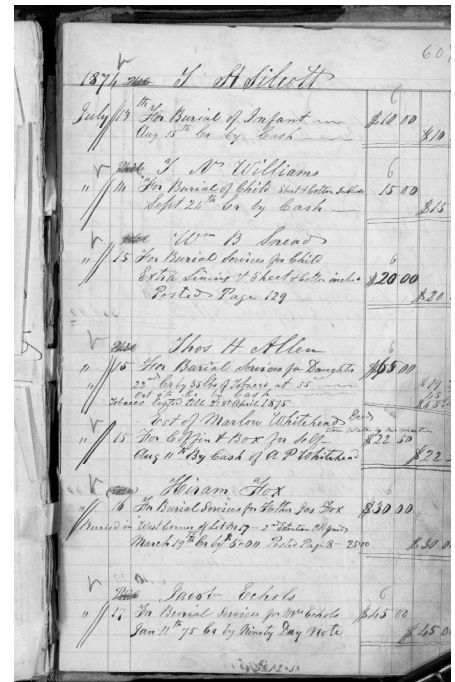 607
1874 T H Silcott
July 13th For Burial of Infant $10 00
Aug 15th Cr by Cash $10
T N Williams
" 14 For Burial of Child Sheet & Cotten 15 00
Sept 24th Cr by Cash $15
Wm B Snead
" 15 For Burial Services for Child
Extra Lining & Sheet & Cotten $20 00
Posted Page 129 $20
Thos H Allen
" 15 For Burial Services for Daughter $65 00
22nd Cr by 35 lbs of Tobacco at 55
Oct Cr by Cash
Tobacco till 2 April 1875
Est of Marlow Whitehead
" 15 For Coffin & Box for Self $22 50
Aug 11th By Cash of A P Whitehead $22
Hiram Fox
" 16 For Burial Services for Father Jas Fox $30 00
Buried in West Corner of Lot No 17 2nd
March 19th Cr by $5.00 Posted Page 8 - 2500 $30 0
Jacob Echols
" 17 For Burial Services for Mr Echols $45 00
Jan 11th 75 Cr by Ninety Day Note $45 0